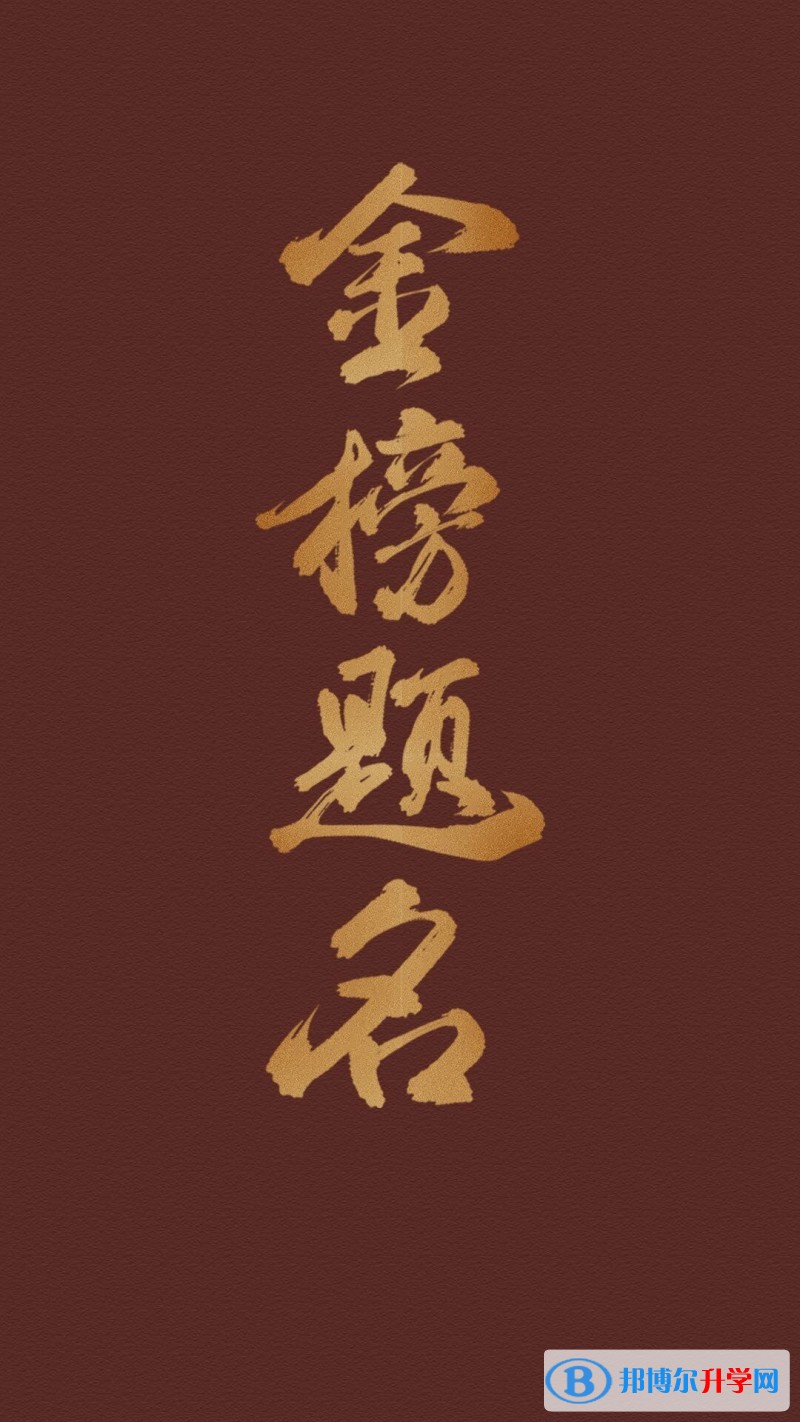 金榜题名
B 邦博尔升学网